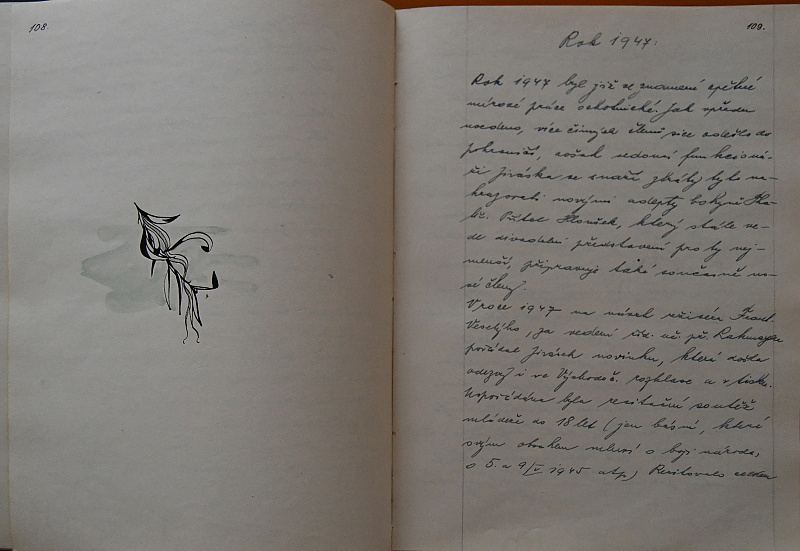 108.
109.
Rok 1947.
Rok 1947 byl již ve znamení zpětné
mírové práce ochotnické. Jak vpředu
uvedeno, více činných členů sice odešlo do
pohraničí, avšak vedoucí funkcioná-
ři Jiráska se snaží ztráty tyto na-
hrazovati novými adepty bohyně Tha-
lie. Přítel Hloušek, který stále ve-
de divadelní představení pro ty nej-
menší, připravuje také současně no-
vé členy.
V roce 1947 na návrh režiséra Frant.
Veselého, za vedení říd. uč. př.
pořádal Jirásek novinku, která došla
odezvy i ve Východoč. rozhlase a v tisku.
Uspořádána byla recitační soutěž
mládeže do 18 let (jen básní, které
svým obsahem mluví o boji národa,
o 5. a 9/V 1945 atp.) Recitovalo celkem